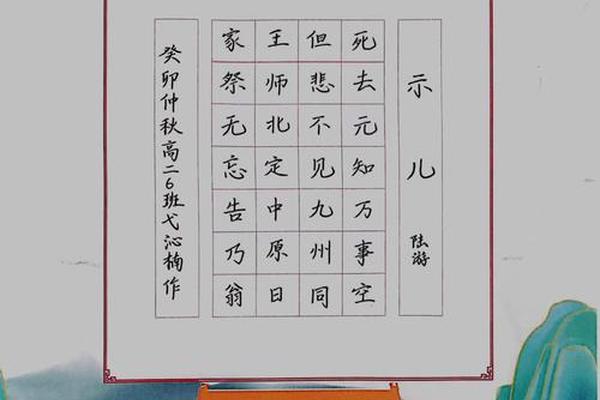 示儿
陆游
死去元知万事空
但悲不见九州同
王师北定中原日
家祭无忘告乃翁
癸卯仲秋高二6班弋沁楠作